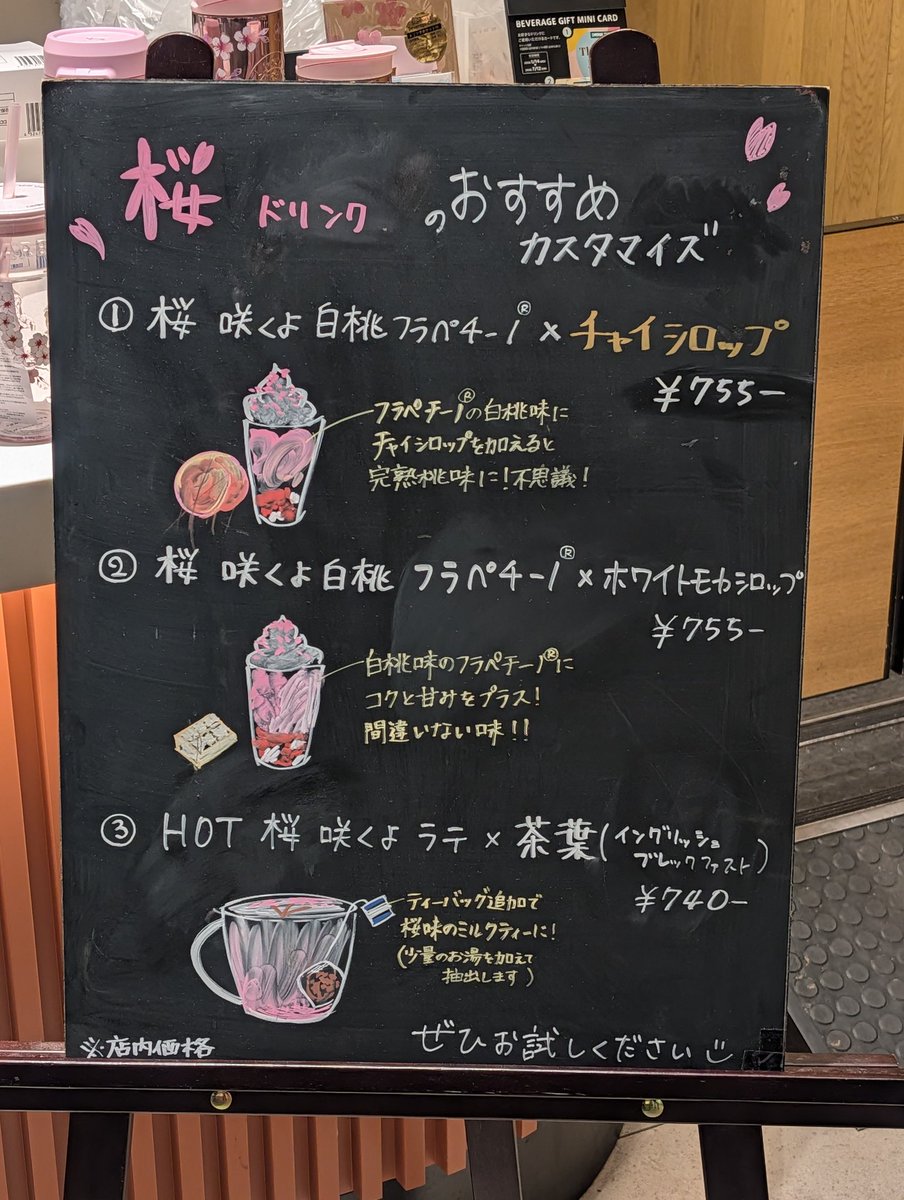 BEVERAGE GIFT MINI CARD
桜 ドリンク のおすすめ
カスタマイズ
① 桜 咲くよ 白桃フラペチーノ® × チャイシロップ
¥755-
フラペチーノ®の白桃味に
チャイシロップを加えると
完熟桃味に!不思議!
② 桜 咲くよ白桃 フラペチーノ® × ホワイトモカシロップ
¥755-
白桃味のフラペチーノ®に
コクと甘みをプラス!
間違いない味!!
③ HOT 桜 咲くよ ラテ × 茶葉(イングリッシュ
ブレックファスト)
¥740-
ティーバッグ追加で
桜味のミルクティーに!
(少量のお湯を加えて
抽出します)
※店内価格
ぜひお試しください